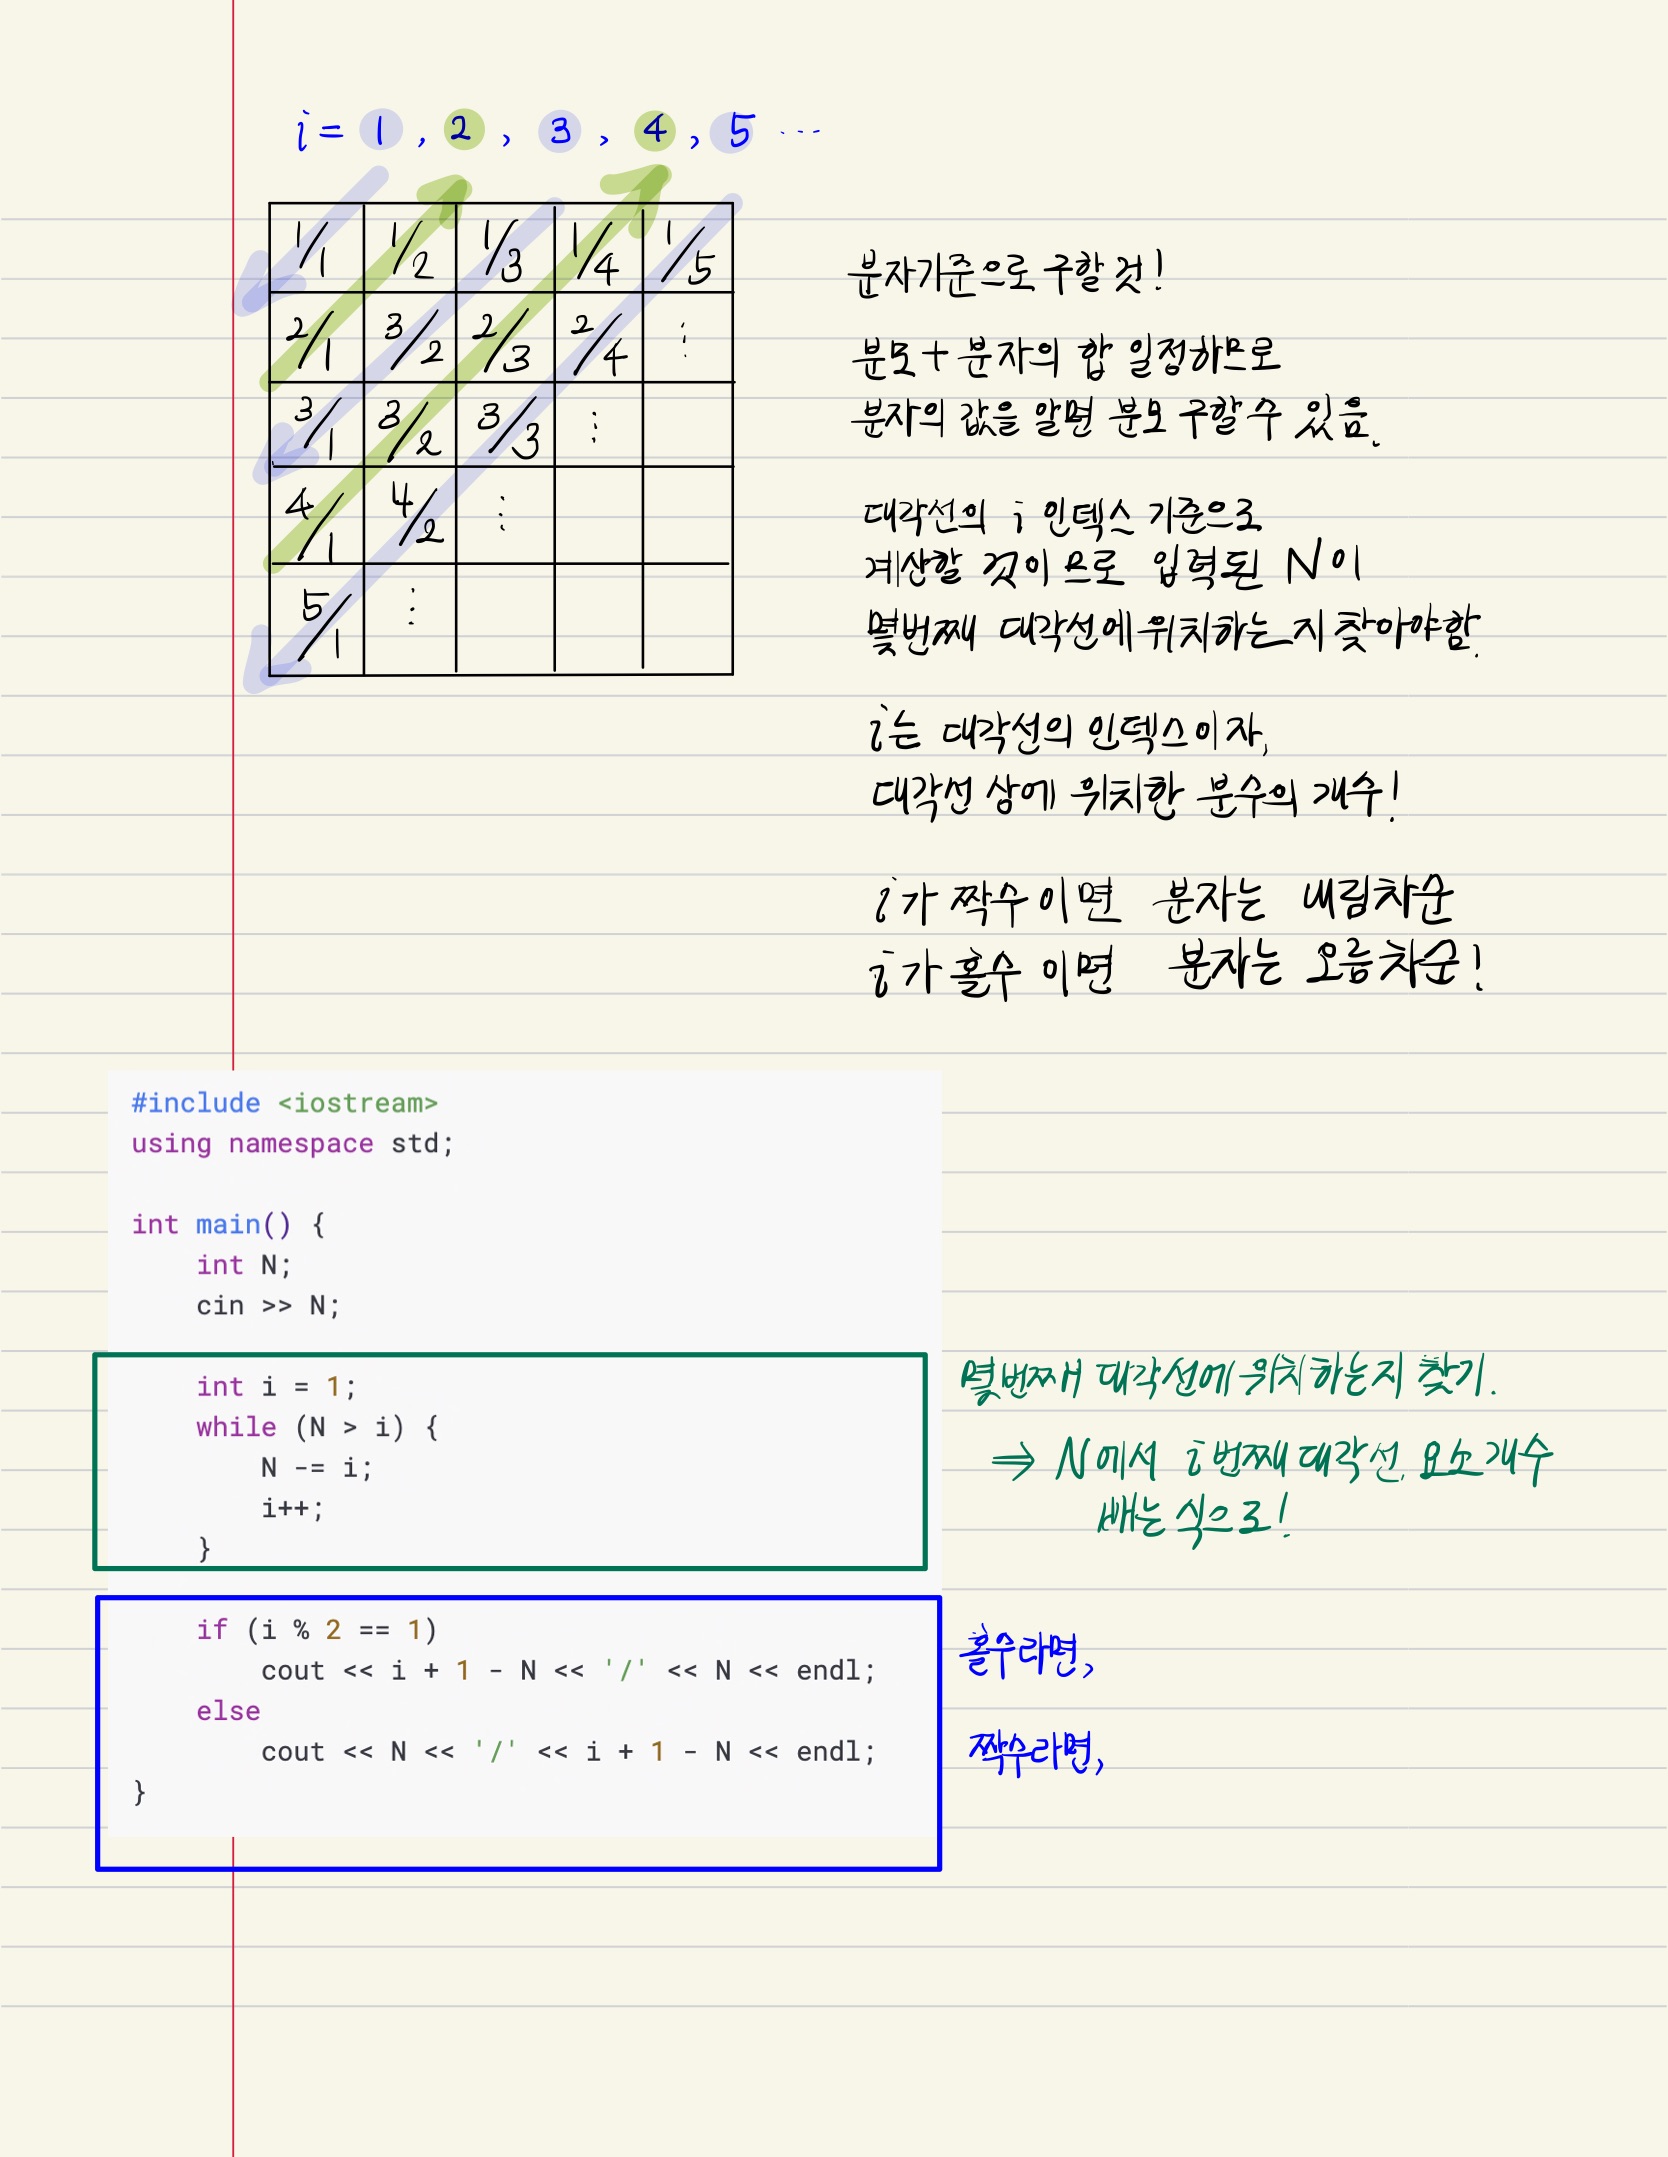 i = 1 , 2 , 3 , 4 , 5 ...
1/1 1/2 1/3 1/4 1/5
2/1 3/2 2/3 2/4 ⋮
3/1 3/2 3/3 ⋮
4/1 4/2 ⋮
5/1 ⋮
분자기준으로 구할 것!
분모 + 분자의 합 일정하므로
분자의 값을 알면 분모 구할 수 있음.
대각선의 i 인덱스 기준으로
계산할 것이므로 입력된 N이
몇번째 대각선에 위치하는지 찾아야함.
i는 대각선의 인덱스이자,
대각선 상에 위치한 분수의 개수!
i가 짝수이면 분자는 내림차순
i가 홀수이면 분자는 오름차순!
#include <iostream>
using namespace std;
int main() {
    int N;
    cin >> N;
    int i = 1;
    while (N > i) {
        N -= i;
        i++;
    }
몇번째 대각선에 위치하는지 찾기.
⇒ N에서 i번째 대각선 요소개수
빼는 식으로!
    if (i % 2 == 1)
        cout << i + 1 - N << '/' << N << endl;
    else
        cout << N << '/' << i + 1 - N << endl;
}
홀수라면,
짝수라면,